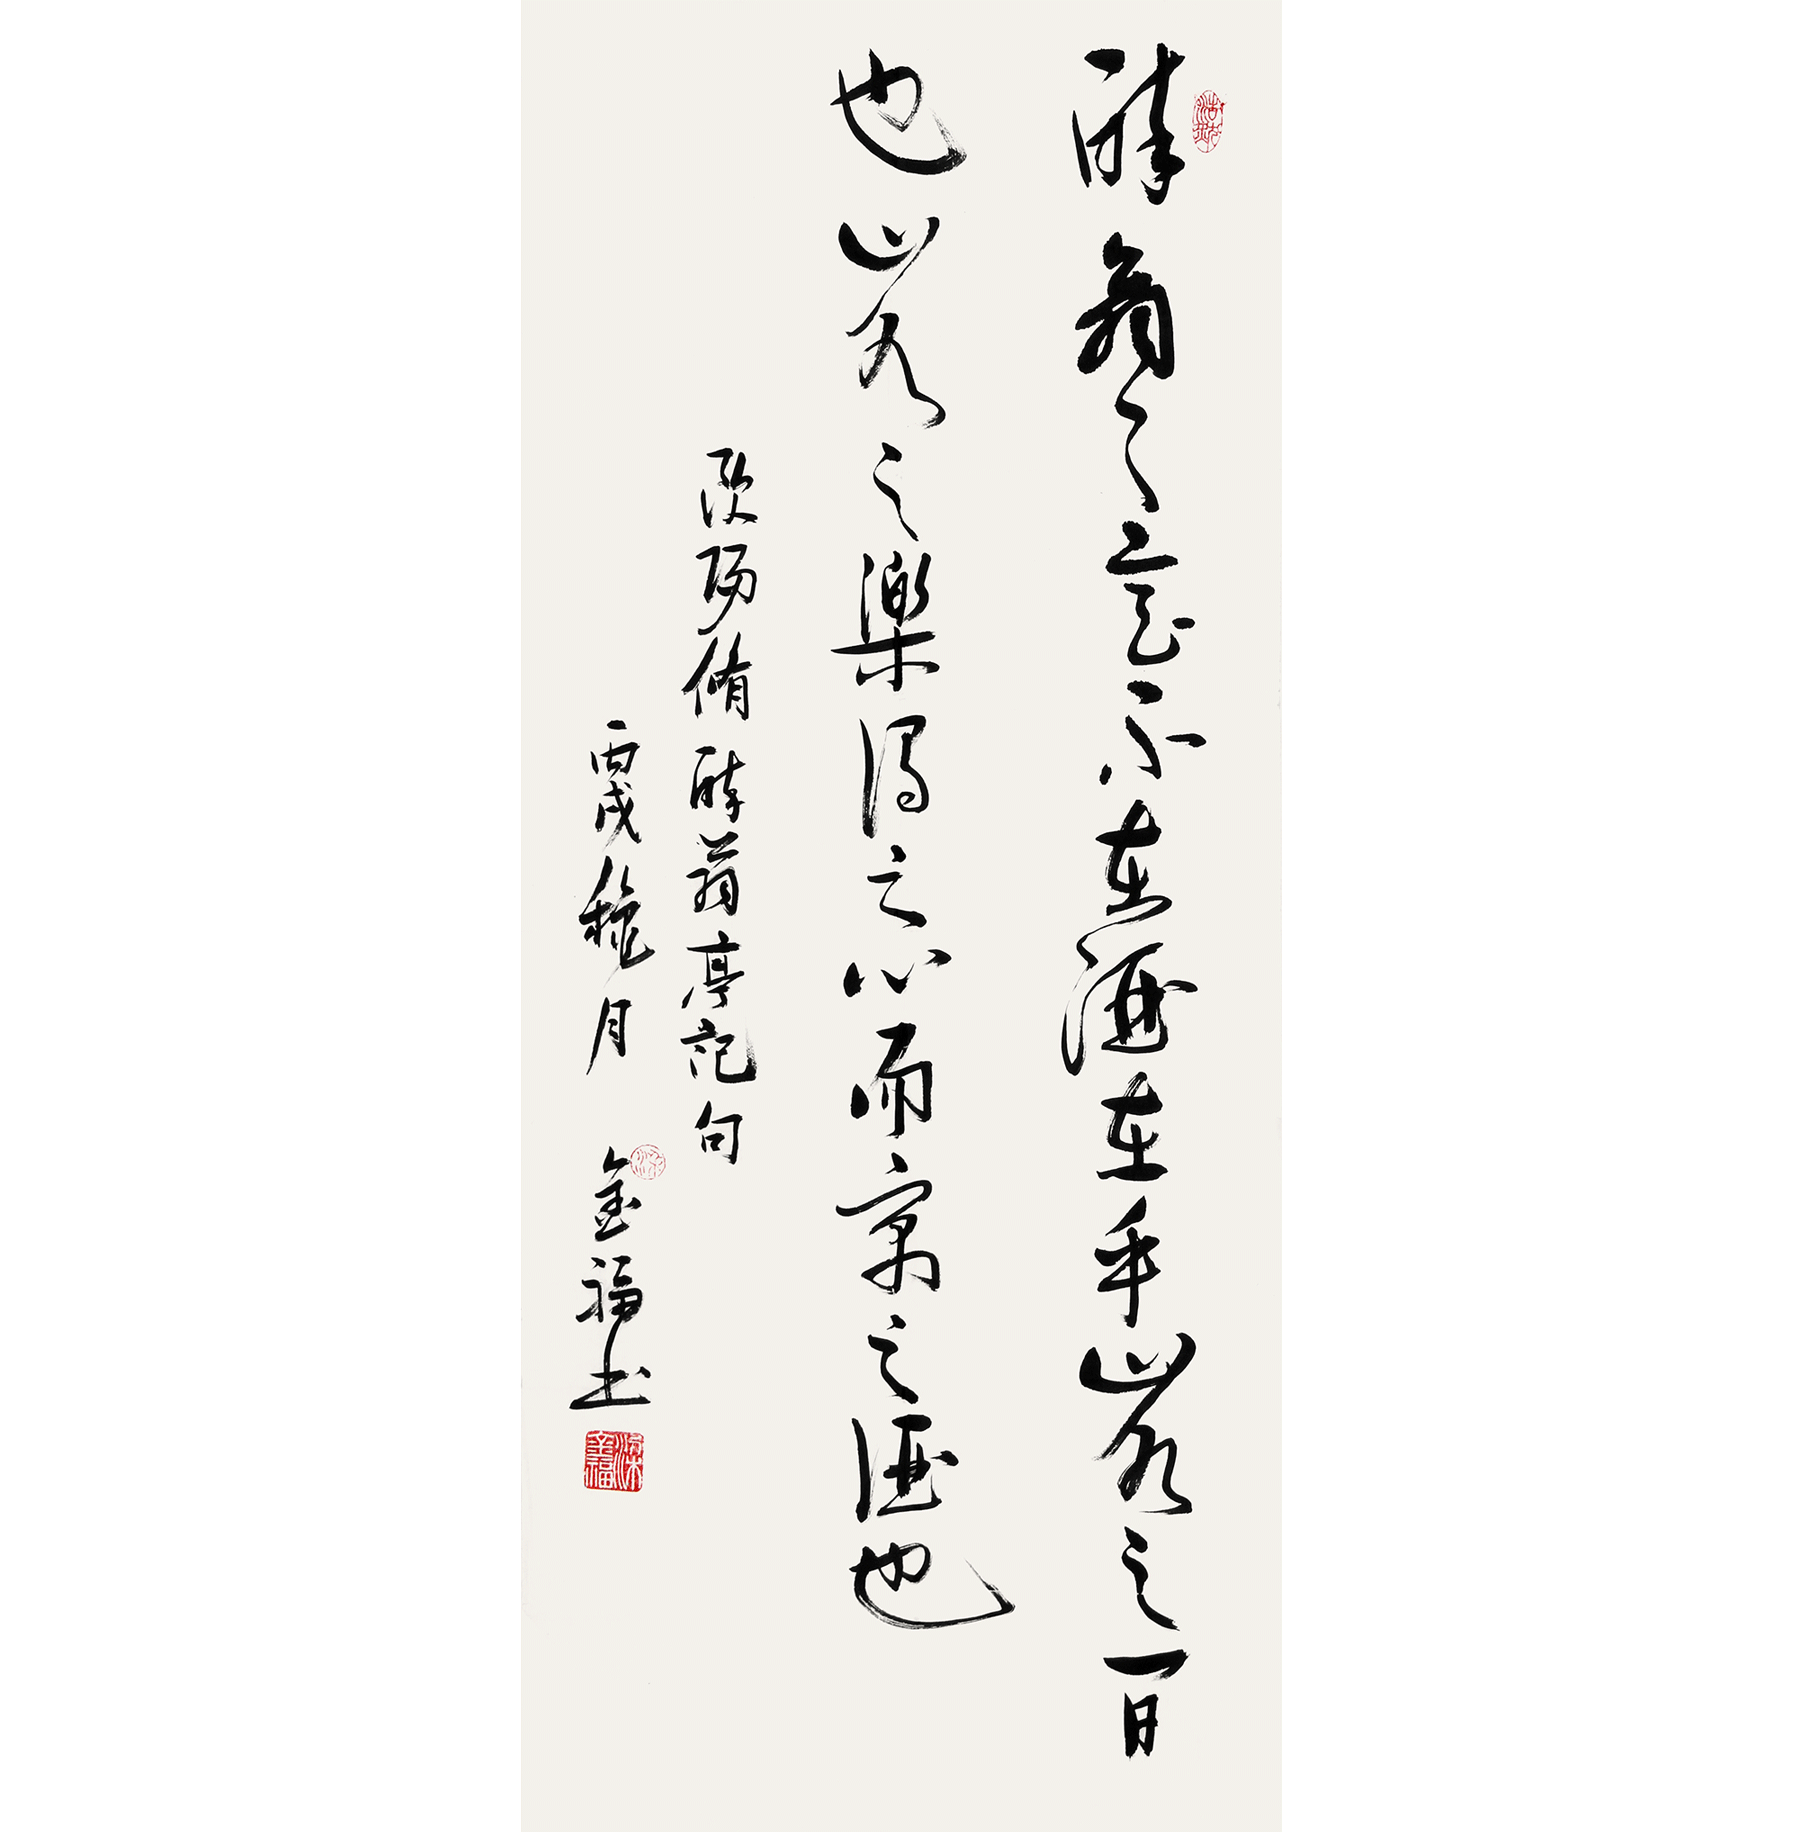 醉翁之意不在酒在乎山水之間
也山水之樂得之心而寓之酒也
歐陽脩醉翁亭記句
丙戌穐月 金福书
梁金福